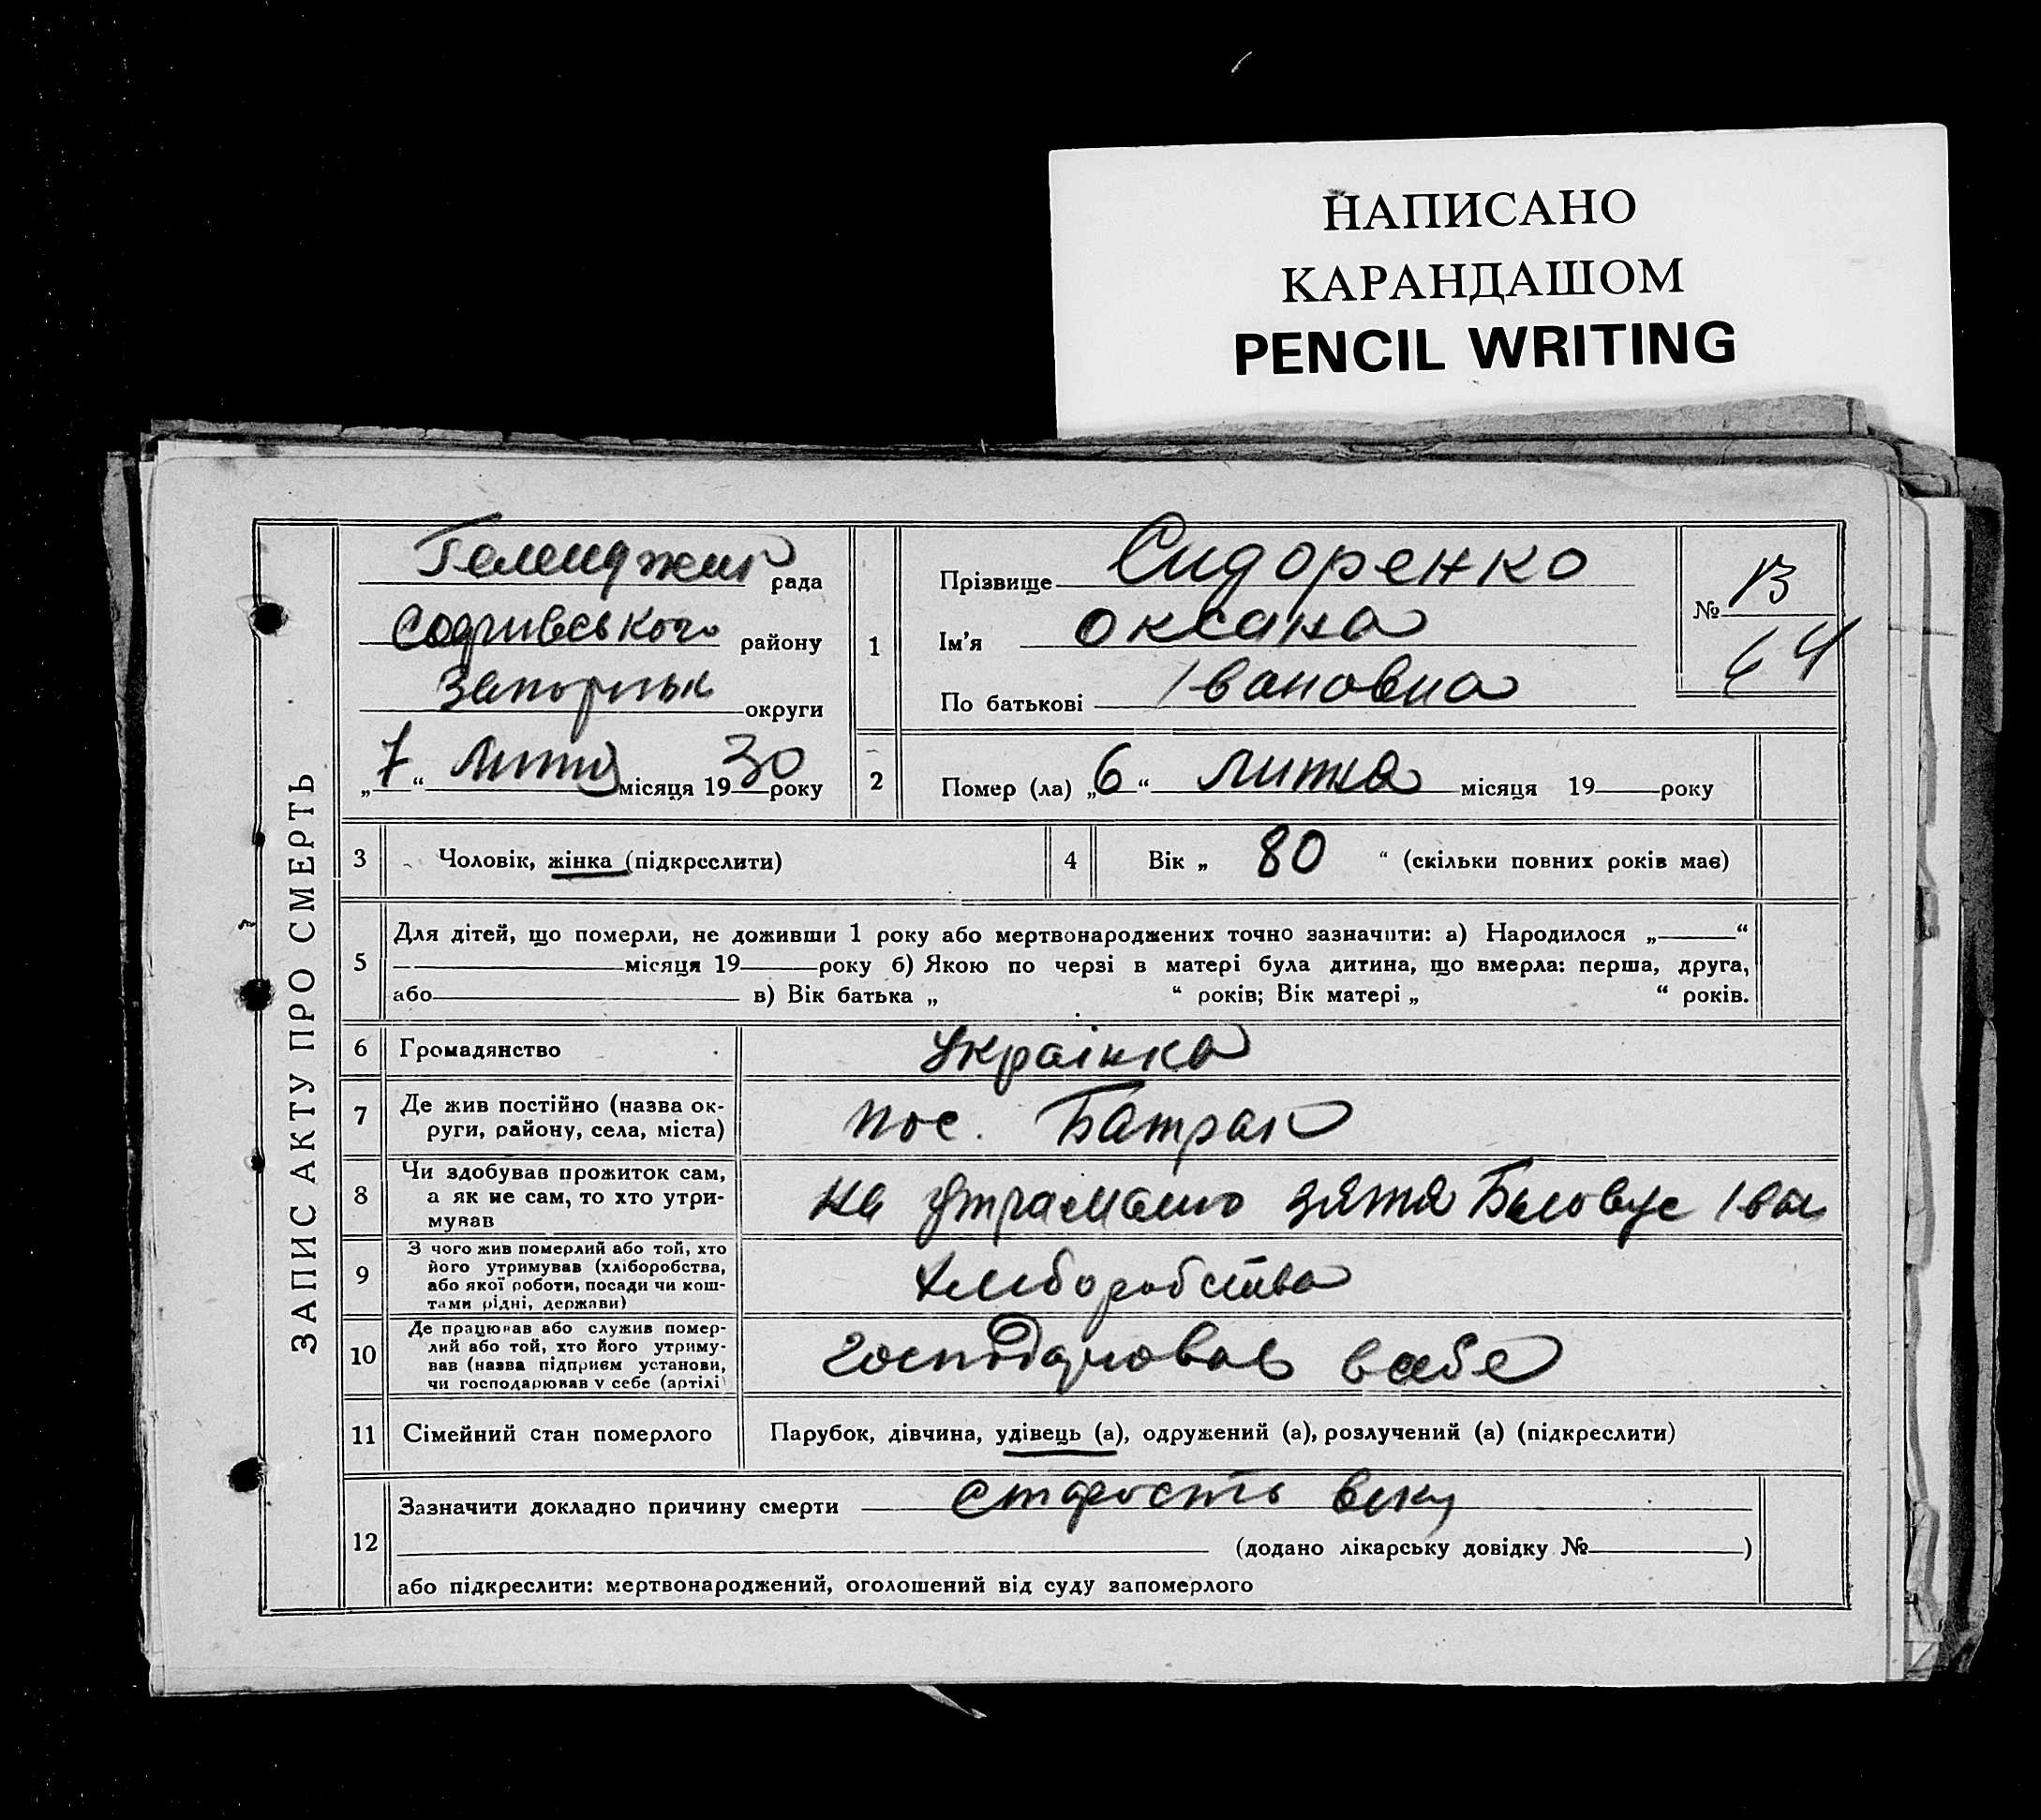 НАПИСАНО
КАРАНДАШОМ
PENCIL WRITING
ЗАПИС АКТУ ПРО СМЕРТЬ
рада
району
округи
„7“ місяця 1930 року
1
Прізвище Сидоренко
Ім'я Оксана
По батькові Івановна
№
64
2
Помер (ла) „6“ лютня місяця 19 року
3
Чоловік, жінка (підкреслити)
4
Вік „ 80 “ (скільки повних років має)
5
Для дітей, що померли, не доживши 1 року або мертвонароджених точно зазначити: а) Народилося „ “
місяця 19 року б) Якою по черзі в матері була дитина, що вмерла: перша, друга,
або в) Вік батька „ “ років; Вік матері „ “ років.
6
Громадянство
Українка
7
Де жив постійно (назва ок-
руги, району, села, міста)
пос. Батрак
8
Чи здобував прожиток сам,
а як не сам, то хто утри-
мував
на зятя Іван
9
З чого жив померлий або той, хто
його утримував (хліборобства,
або якої роботи, посади чи кош-
тами рідні, держави)
хліборобства
10
Де працював або служив помер-
лий або той, хто його утриму-
вав (назва підприєм установи,
чи господарював у себе (артілі
господарював всебе
11
Сімейний стан померлого
Парубок, дівчина, удівець (а), одружений (а), розлучений (а) (підкреслити)
12
Зазначити докладно причину смерти старость веку
(додано лікарську довідку № )
або підкреслити: мертвонароджений, оголошений від суду запомерлого